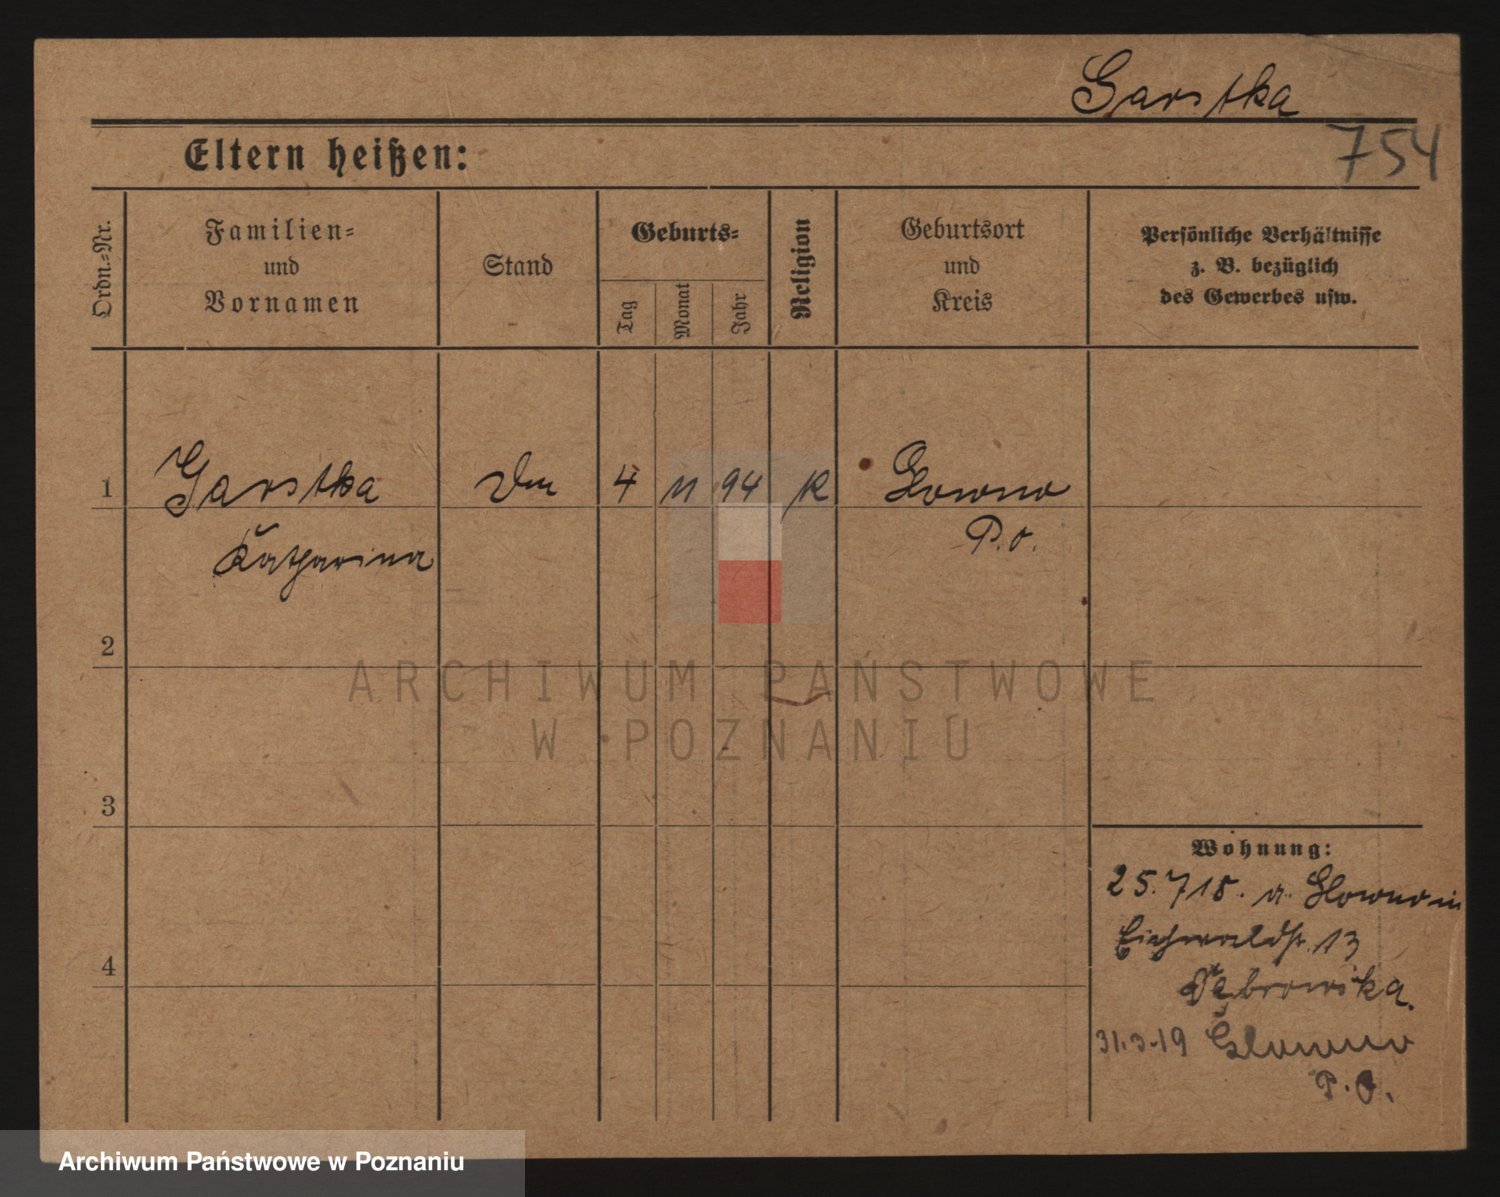 Garstka
754
Eltern heißen:
Ordn.-Nr.
Familien-
und
Vornamen
Stand
Geburts-
Tag
Monat
Jahr
Religion
Geburtsort
und
Kreis
Persönliche Verhältnisse
z. B. bezüglich
des Gewerbes usw.
1 Garstka 4 11 94 K Glowno
Katharina P.O.
2
ARCHIWUM PAŃSTWOWE
W POZNANIU
3
Wohnung:
25.7 18. a. Glowno in
Eichwaldstr. 13
Dębrowska.
4
31.3.19 Glowno
P.O.
Archiwum Państwowe w Poznaniu